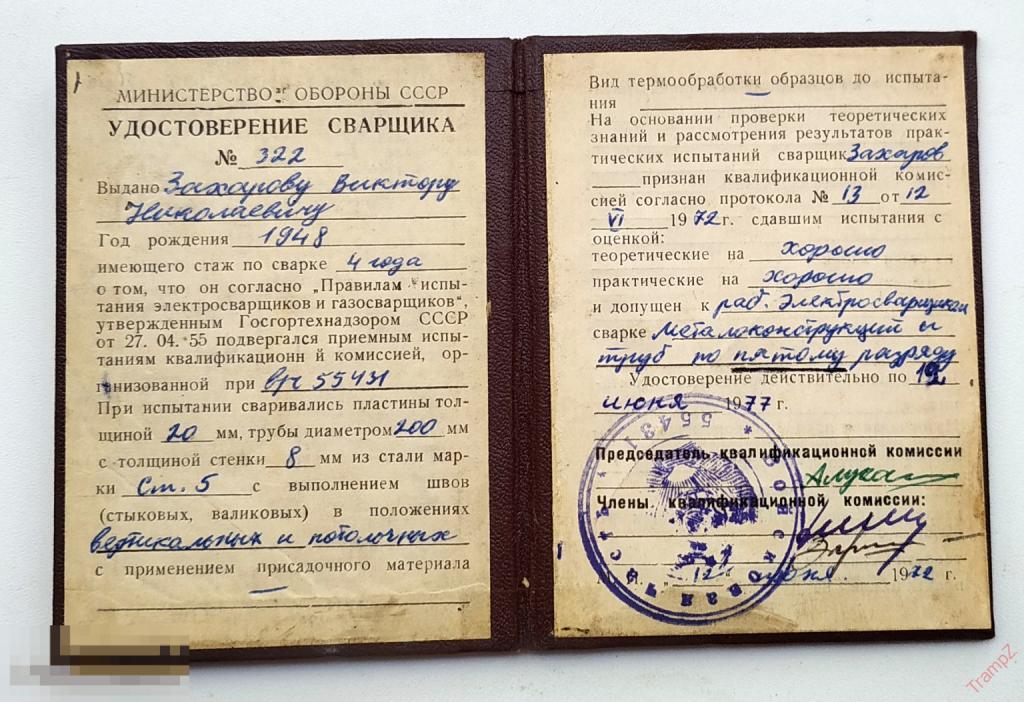 МИНИСТЕРСТВО ОБОРОНЫ СССР
УДОСТОВЕРЕНИЕ СВАРЩИКА
№ 322
Выдано Захарову Виктору
Николаевичу
Год рождения 1948
имеющего стаж по сварке 4 года
о том, что он согласно „Правилам испы-
тания электросварщиков и газосварщиков“,
утвержденным Госгортехнадзором СССР
от 27. 04. 55 подвергался приемным испы-
таниям квалификационн й комиссией, ор-
ганизованной при в/ч 55431
При испытании сваривались пластины тол-
щиной 20 мм, трубы диаметром 200 мм
с толщиной стенки 8 мм из стали мар-
ки Ст. 5 с выполнением швов
(стыковых, валиковых) в положениях
вертикальных и потолочных
с применением присадочного материала
—
Вид термообработки образцов до испыта-
ния —
На основании проверки теоретических
знаний и рассмотрения результатов прак-
тических испытаний сварщик Захаров
признан квалификационной комис-
сией согласно протокола № 13 от 12
VI 1972 г. сдавшим испытания с
оценкой:
теоретические на хорошо
практические на хорошо
и допущен к раб. электросварщиком
сварке металоконструкций и
труб по пятому разряду
Удостоверение действительно по 12
июня 1977 г.
Председатель квалификационной комиссии
Члены квалификационной комиссии:
12 июня. 1972 г.
* ВОЙСКОВАЯ ЧАСТЬ * 55431
TrampZ